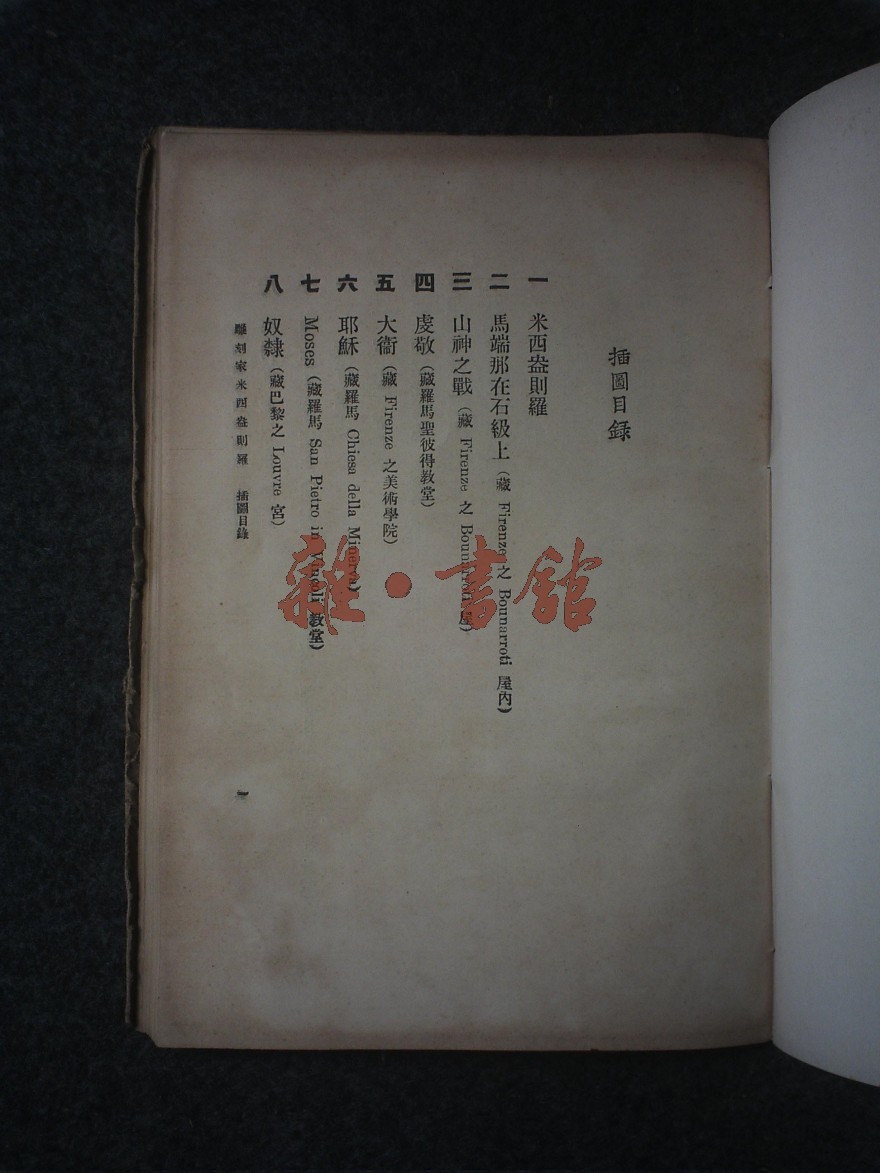 插圖目錄
一 米西盎則羅
二 馬端那在石級上（藏 Firenze 之 Bounarroti 屋內）
三 山神之戰（藏 Firenze 之 Bounarroti 屋）
四 虔敬（藏羅馬聖彼得教堂）
五 大衞（藏 Firenze 之美術學院）
六 耶穌（藏羅馬 Chiesa della Minerva）
七 Moses（藏羅馬 San Pietro in Vincoli 教堂）
八 奴隸（藏巴黎之 Louvre 宮）
雕刻家米西盎則羅 插圖目錄
一
雜·書館